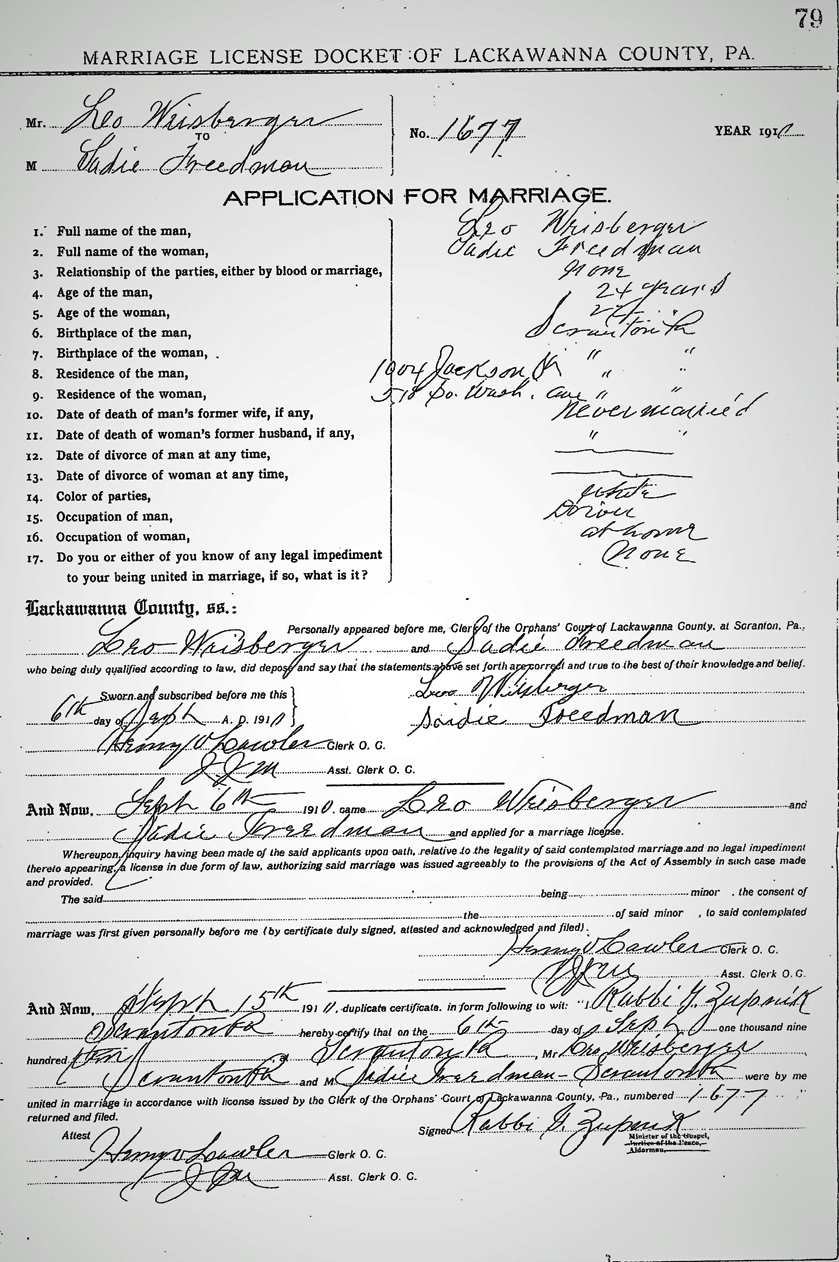 79
MARRIAGE LICENSE DOCKET OF LACKAWANNA COUNTY, PA.
Mr. Leo Weisberger
TO
M Sadie Freedman
No. 1677
YEAR 1910
APPLICATION FOR MARRIAGE.
1. Full name of the man, Leo Weisberger
2. Full name of the woman, Sadie Freedman
3. Relationship of the parties, either by blood or marriage, None
4. Age of the man, 24 years
5. Age of the woman, "
6. Birthplace of the man, Scranton Pa
7. Birthplace of the woman, " "
8. Residence of the man, 1004 Jackson St " "
9. Residence of the woman, 518 So. Wash. ave " "
10. Date of death of man's former wife, if any, Never married
11. Date of death of woman's former husband, if any, " "
12. Date of divorce of man at any time,
13. Date of divorce of woman at any time,
14. Color of parties, White
15. Occupation of man, Driver
16. Occupation of woman, at home
17. Do you or either of you know of any legal impediment None
to your being united in marriage, if so, what is it?
Lackawanna County, ss.:
Personally appeared before me, Clerk of the Orphans' Court of Lackawanna County, at Scranton, Pa.,
Leo Weisberger and Sadie Freedman
who being duly qualified according to law, did depose and say that the statements above set forth are correct and true to the best of their knowledge and belief.
Sworn and subscribed before me this Leo Weisberger
6th day of Sept A. D. 1910 Saidie Freedman
Clerk O. C.
J J M Asst. Clerk O. C.
And Now, Sept 6th 1910. came Leo Weisberger and
Sadie Freedman and applied for a marriage license.
Whereupon, inquiry having been made of the said applicants upon oath, relative to the legality of said contemplated marriage and no legal impediment
thereto appearing, a license in due form of law, authorizing said marriage was issued agreeably to the provisions of the Act of Assembly in such case made
and provided.
The said being minor , the consent of
the of said minor , to said contemplated
marriage was first given personally before me (by certificate duly signed, attested and acknowledged and filed).
Clerk O. C.
Asst. Clerk O. C.
And Now, Sept 15th 1910, duplicate certificate, in form following to wit: "I Rabbi
Scranton Pa hereby certify that on the 6th day of Sept one thousand nine
hundred ten at Scranton Pa, Mr Leo Weisberger
Scranton Pa and M Sadie Freedman - Scranton Pa were by me
united in marriage in accordance with license issued by the Clerk of the Orphans' Court of Lackawanna County, Pa., numbered 1677 "
returned and filed.
Signed Rabbi
Minister of the Gospel,
Justice of the Peace,
Alderman.
Attest
Clerk O. C.
Asst. Clerk O. C.